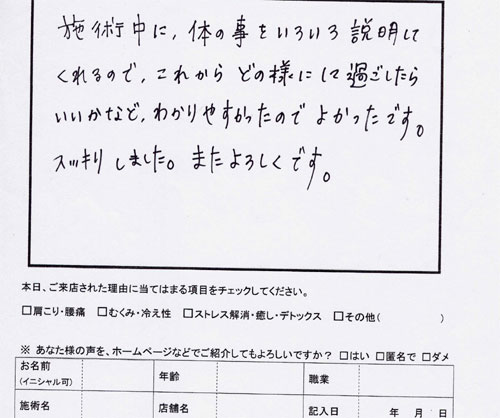 施術中に、体の事をいろいろ説明して
くれるので、これから どの様にして過ごしたら
いいかなど、わかりやすかったので よかったです。
スッキリ しました。またよろしくです。
本日、ご来店された理由に当てはまる項目をチェックしてください。
□肩こり・腰痛 □むくみ・冷え性 □ストレス解消・癒し・デトックス □その他( )
※ あなた様の声を、ホームページなどでご紹介してもよろしいですか？ □はい □匿名で □ダメ
お名前 年齢 職業
(イニシャル可)
施術名 店舗名 記入日 年 月 日